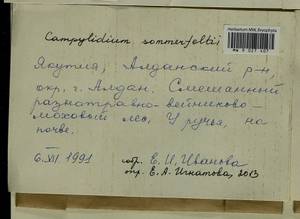 Herbarium MW, Bryophyta
Campylidium sommerfeltii
Якутия, Алданский р-н,
окр. г. Алдан. Смешанный
разнотравно-вейниково-
моховый лес. У ручья, на
почве.
6.VII 1991 соб. Е. И. Иванова
опр. Е. А. Игнатова, 2013